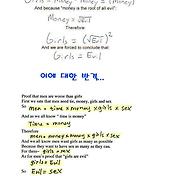 Girls = Money × Money = (Money)²
And because "money is the root of all evil":
Money = √Evil
Therefore:
Girls = (√Evil)²
And we are forced to conclude that:
Girls = Evil
이에 대한 반격...
Proof that men are worse than girls
First we sate that men need for time, money, girls and sex
men = time × money × girls × sex
And as we all know "time is money"
Time = money
Therefore
men = money × money × girls × sex
And we all know men want girls as many as possible
Because they want to have sex as many as they can.
For them- girls ∝ sex
As for men's proof that "girls are evil"
girls = Evil
So Evil = sex